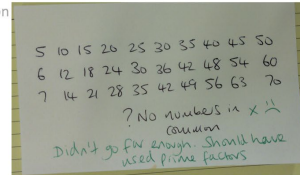 en
5 10 15 20 25 30 35 40 45 50
6 12 18 24 30 36 42 48 54 60
7 14 21 28 35 42 49 56 63 70
? No numbers in x ☹
common
Didn't go far enough. Should have
used prime factors